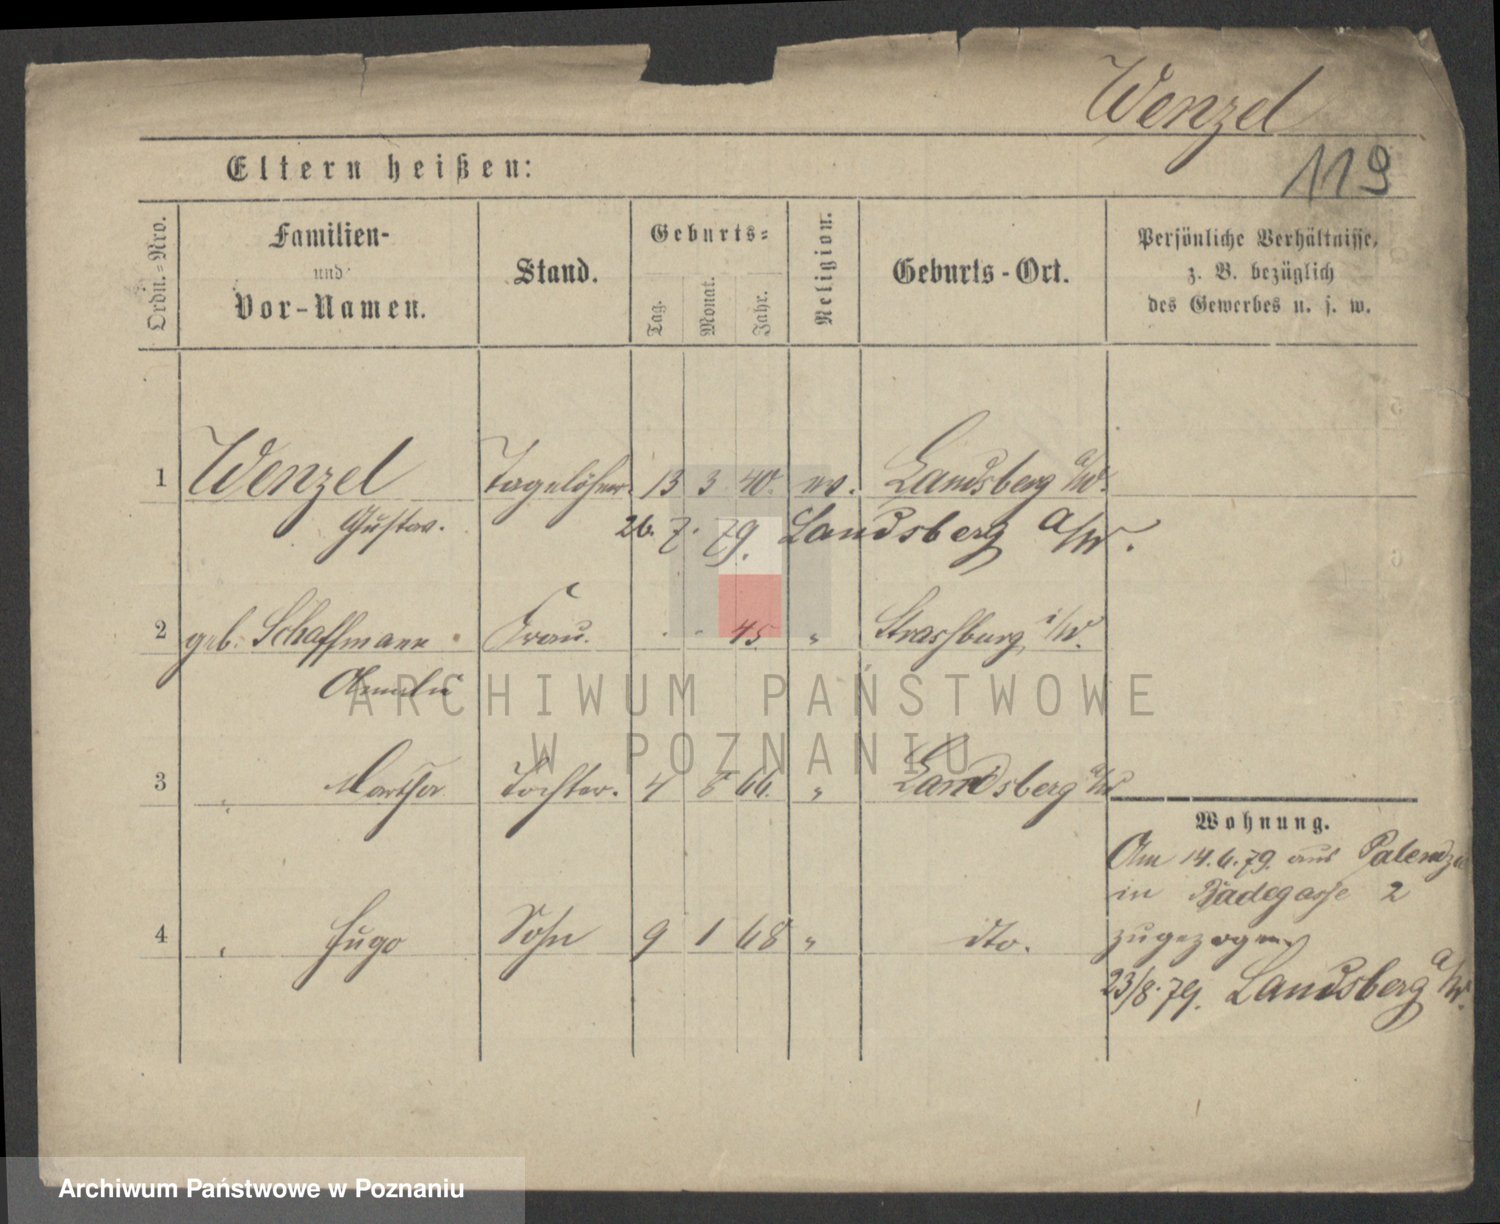 Wenzel
119
Eltern heißen:
Ordn.-Nro.
Familien-
und
Vor-Namen.
Stand.
Geburts-
Tag.
Monat.
Jahr.
Religion.
Geburts-Ort.
Persönliche Verhältnisse,
z. B. bezüglich
des Gewerbes u. s. w.
1 Wenzel Tagelöhner 13 3 40. ev. Landsberg a/W.
Gustav. 26. 7. 79. Landsberg a/W.
2 geb. Schaffmann Frau. . - 45 " Strasburg i/W.
Amalie
ARCHIWUM PAŃSTWOWE
W POZNANIU
3 " Martha Tochter. 4 8 66. " Landsberg a/W
4 " Hugo Sohn 9 1 68 " dto.
Wohnung.
Am 14.6.79. aus
in Badegasse 2
zugezogen
23/8.79. Landsberg a/W.
Archiwum Państwowe w Poznaniu